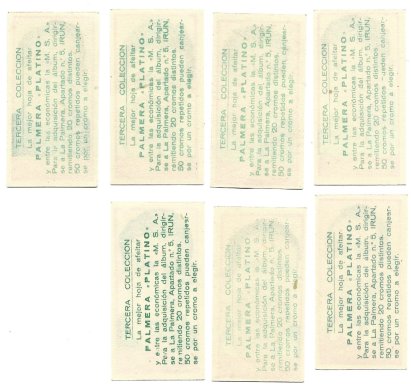 TERCERA COLECCION
La mejor hoja de afeitar
PALMERA «PLATINO»
y entre las económicas la «M. S. A.»
Para la adquisición del álbum, dirigir-
se a La Palmera, Apartado n.° 5, IRUN,
remitiendo 20 cromos distintos.
50 cromos repetidos pueden canjear-
se por un cromo a elegir.
TERCERA COLECCION
La mejor hoja de afeitar
PALMERA «PLATINO»
y entre las económicas la «M. S. A.»
Para la adquisición del álbum, dirigir-
se a La Palmera, Apartado n.° 5, IRUN,
remitiendo 20 cromos distintos.
50 cromos repetidos pueden canjear-
se por un cromo a elegir.
TERCERA COLECCION
La mejor hoja de afeitar
PALMERA «PLATINO»
y entre las económicas la «M. S. A.»
Para la adquisición del álbum, dirigir-
se a La Palmera, Apartado n.° 5, IRUN,
remitiendo 20 cromos distintos.
50 cromos repetidos pueden canjear-
se por un cromo a elegir.
TERCERA COLECCION
La mejor hoja de afeitar
PALMERA «PLATINO»
y entre las económicas la «M. S. A.»
Para la adquisición del álbum, dirigir-
se a La Palmera, Apartado n.° 5, IRUN,
remitiendo 20 cromos distintos.
50 cromos repetidos pueden canjear-
se por un cromo a elegir.
TERCERA COLECCION
La mejor hoja de afeitar
PALMERA «PLATINO»
y entre las económicas la «M. S. A.»
Para la adquisición del álbum, dirigir-
se a La Palmera, Apartado n.° 5, IRUN,
remitiendo 20 cromos distintos.
50 cromos repetidos pueden canjear-
se por un cromo a elegir.
TERCERA COLECCION
La mejor hoja de afeitar
PALMERA «PLATINO»
y entre las económicas la «M. S. A.»
Para la adquisición del álbum, dirigir-
se a La Palmera, Apartado n.° 5, IRUN,
remitiendo 20 cromos distintos.
50 cromos repetidos pueden canjear-
se por un cromo a elegir.
TERCERA COLECCION
La mejor hoja de afeitar
PALMERA «PLATINO»
y entre las económicas la «M. S. A.»
Para la adquisición del álbum, dirigir-
se a La Palmera, Apartado n.° 5, IRUN,
remitiendo 20 cromos distintos.
50 cromos repetidos pueden canjear-
se por un cromo a elegir.